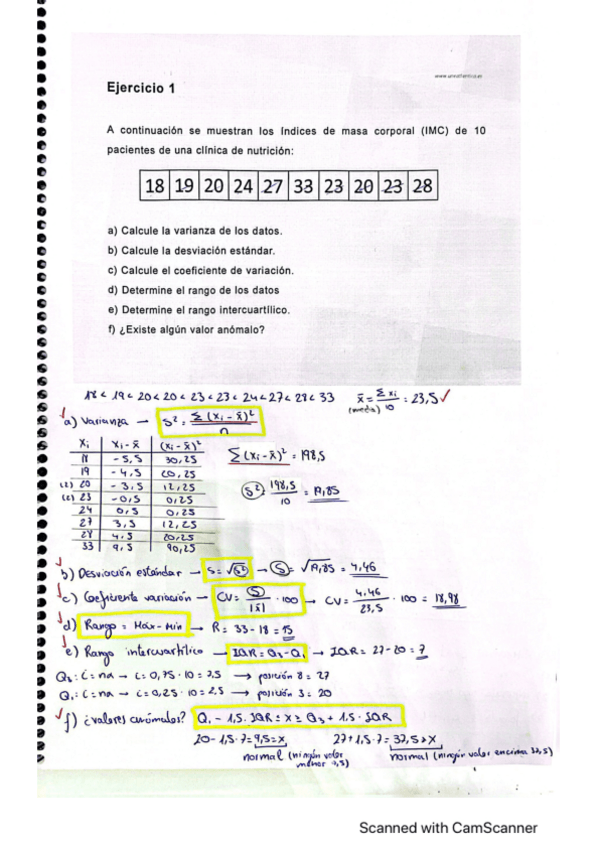 Ejercicio 1
A continuación se muestran los índices de masa corporal (IMC) de 10
pacientes de una clínica de nutrición:
18 19 20 24 27 33 23 20 23 28
a) Calcule la varianza de los datos.
b) Calcule la desviación estándar.
c) Calcule el coeficiente de variación.
d) Determine el rango de los datos
e) Determine el rango intercuartílico.
f) ¿Existe algún valor anómalo?
18 < 19 < 20 < 20 < 23 < 23 < 24 < 27 < 28 < 33 x̄ = Σxi / 10 = 23,5 ✓
(media)
a) Varianza → S² = Σ(xi - x̄)² / n
xi xi - x̄ (xi - x̄)²
18 -5,5 30,25
19 -4,5 20,25
(2) 20 -3,5 12,25
(2) 23 -0,5 0,25
24 0,5 0,25
27 3,5 12,25
28 4,5 20,25
33 9,5 90,25
Σ(xi - x̄)² = 198,5
S² = 198,5 / 10 = 19,85
b) Desviación estándar → S = √S² → S = √19,85 = 4,46
c) Coeficiente variación → CV = S / |x̄| · 100 → CV = 4,46 / 23,5 · 100 = 18,98
d) Rango = Máx - Mín → R = 33 - 18 = 15
e) Rango intercuartílico → IQR = Q3 - Q1 → IQR = 27 - 20 = 7
Q3: i = nα → i = 0,75 · 10 = 7,5 → posición 8 = 27
Q1: i = nα → i = 0,25 · 10 = 2,5 → posición 3 = 20
f) ¿valores anómalos? Q1 - 1,5 · IQR = x ≥ Q3 + 1,5 · IQR
20 - 1,5 · 7 = 9,5 = x 27 + 1,5 · 7 = 37,5 > x
normal (ningún valor menor 9,5) normal (ningún valor encima 37,5)
Scanned with CamScanner